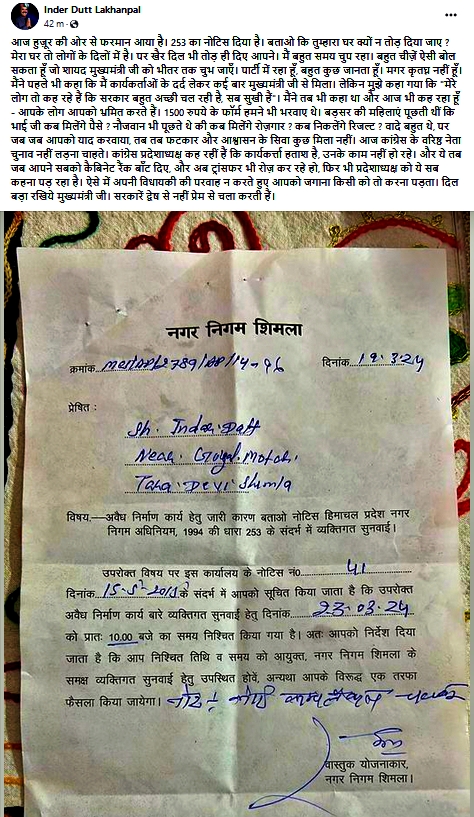 Inder Dutt Lakhanpal
42 m
आज हुज़ूर की ओर से फरमान आया है। 253 का नोटिस दिया है। बताओ कि तुम्हारा घर क्यों न तोड़ दिया जाए ?
मेरा घर तो लोगों के दिलों में है। पर खैर दिल भी तोड़ ही दिए आपने। मैं बहुत समय चुप रहा। बहुत चीज़ें ऐसी बोल
सकता हूँ जो शायद मुख्यमंत्री जी को भीतर तक चुभ जाएँ। पार्टी में रहा हूँ, बहुत कुछ जानता हूँ। मगर कृतघ्न नहीं हूँ।
मैंने पहले भी कहा कि मैं कार्यकर्ताओं के दर्द लेकर कई बार मुख्यमंत्री जी से मिला। लेकिन मुझे कहा गया कि "मेरे
लोग तो कह रहे हैं कि सरकार बहुत अच्छी चल रही है, सब सुखी हैं"। मैंने तब भी कहा था और आज भी कह रहा हूँ
- आपके लोग आपको भ्रमित करते हैं। 1500 रुपये के फॉर्म हमने भी भरवाए थे। बड़सर की महिलाएं पूछती थीं कि
भाई जी कब मिलेंगे पैसे ? नौजवान भी पूछते थे की कब मिलेंगे रोज़गार ? कब निकलेंगे रिजल्ट ? वादे बहुत थे, पर
जब जब आपको याद करवाया, तब तब फटकार और आश्वासन के सिवा कुछ मिला नहीं। आज कांग्रेस के वरिष्ठ नेता
चुनाव नहीं लड़ना चाहते। कांग्रेस प्रदेशाध्यक्ष कह रही हैं कि कार्यकर्त्ता हताश है, उनके काम नहीं हो रहे। और ये तब
जब आपने सबको कैबिनेट रैंक बाँट दिए, और अब ट्रांसफर भी रोज़ कर रहे हो, फिर भी प्रदेशाध्यक्ष को ये सब
कहना पड़ रहा है। ऐसे में अपनी विधायकी की परवाह न करते हुए आपको जगाना किसी को तो करना पड़ता। दिल
बड़ा रखिये मुख्यमंत्री जी। सरकारें द्वेष से नहीं प्रेम से चला करती हैं।
नगर निगम शिमला
क्रमांक दिनांक 19.3.24
प्रेषित :
Sh. Inder Datt
Near. Goyal. Motor.
Tara Devi Shimla
विषय.—अवैध निर्माण कार्य हेतु जारी कारण बताओ नोटिस हिमाचल प्रदेश नगर
निगम अधिनियम, 1994 की धारा 253 के संदर्भ में व्यक्तिगत सुनवाई।
उपरोक्त विषय पर इस कार्यालय के नोटिस नं0 41
दिनांक के संदर्भ में आपको सूचित किया जाता है कि उपरोक्त
अवैध निर्माण कार्य बारे व्यक्तिगत सुनवाई हेतु दिनांक 23.03.24
को प्रातः 10.00 बजे का समय निश्चित किया गया है। अतः आपको निर्देश दिया
जाता है कि आप निश्चित तिथि व समय को आयुक्त, नगर निगम शिमला के
समक्ष व्यक्तिगत सुनवाई हेतु उपस्थित होवें, अन्यथा आपके विरूद्ध एक तरफा
फैसला किया जायेगा।
वास्तुक योजनाकार,
नगर निगम शिमला।